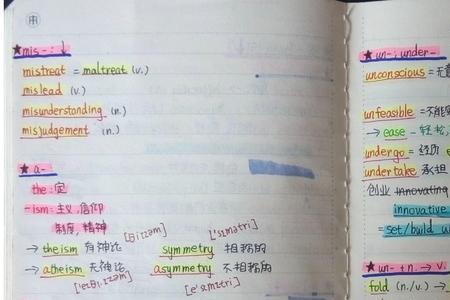 ★mis-:↓
mistreat = maltreat (v.)
mislead (v.)
misunderstanding (n.)
misjudgement (n.)
★a-
the:定
-ism:主义,信仰
制度,精神
[ˈsɪmətri]
→ theism 有神论 symmetry 相称的
→ atheism 无神论 asymmetry 不相称的
[ˈeɪθɪ,ɪzəm]
★un-; under-
unconscious = 无意
unfeasible = 不能
→ ease - 轻松,
undergo = 经历
undertake 承担
创业 innovating
innovative
= set/build
★un- + n. → v.
fold (n./v.) →